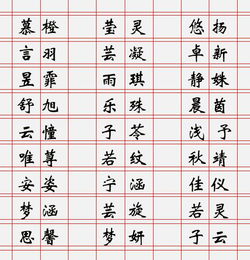 慕橙 莹灵 悠扬
言羽 芸凝 卓新
昱霏 雨琪 静姝
舒旭 乐珠 晨茵
云憧 子苓 浅予
唯尊 若纹 秋靖
安姿 宁涵 佳仪
梦涵 芸旋 若灵
思馨 梦妍 子云